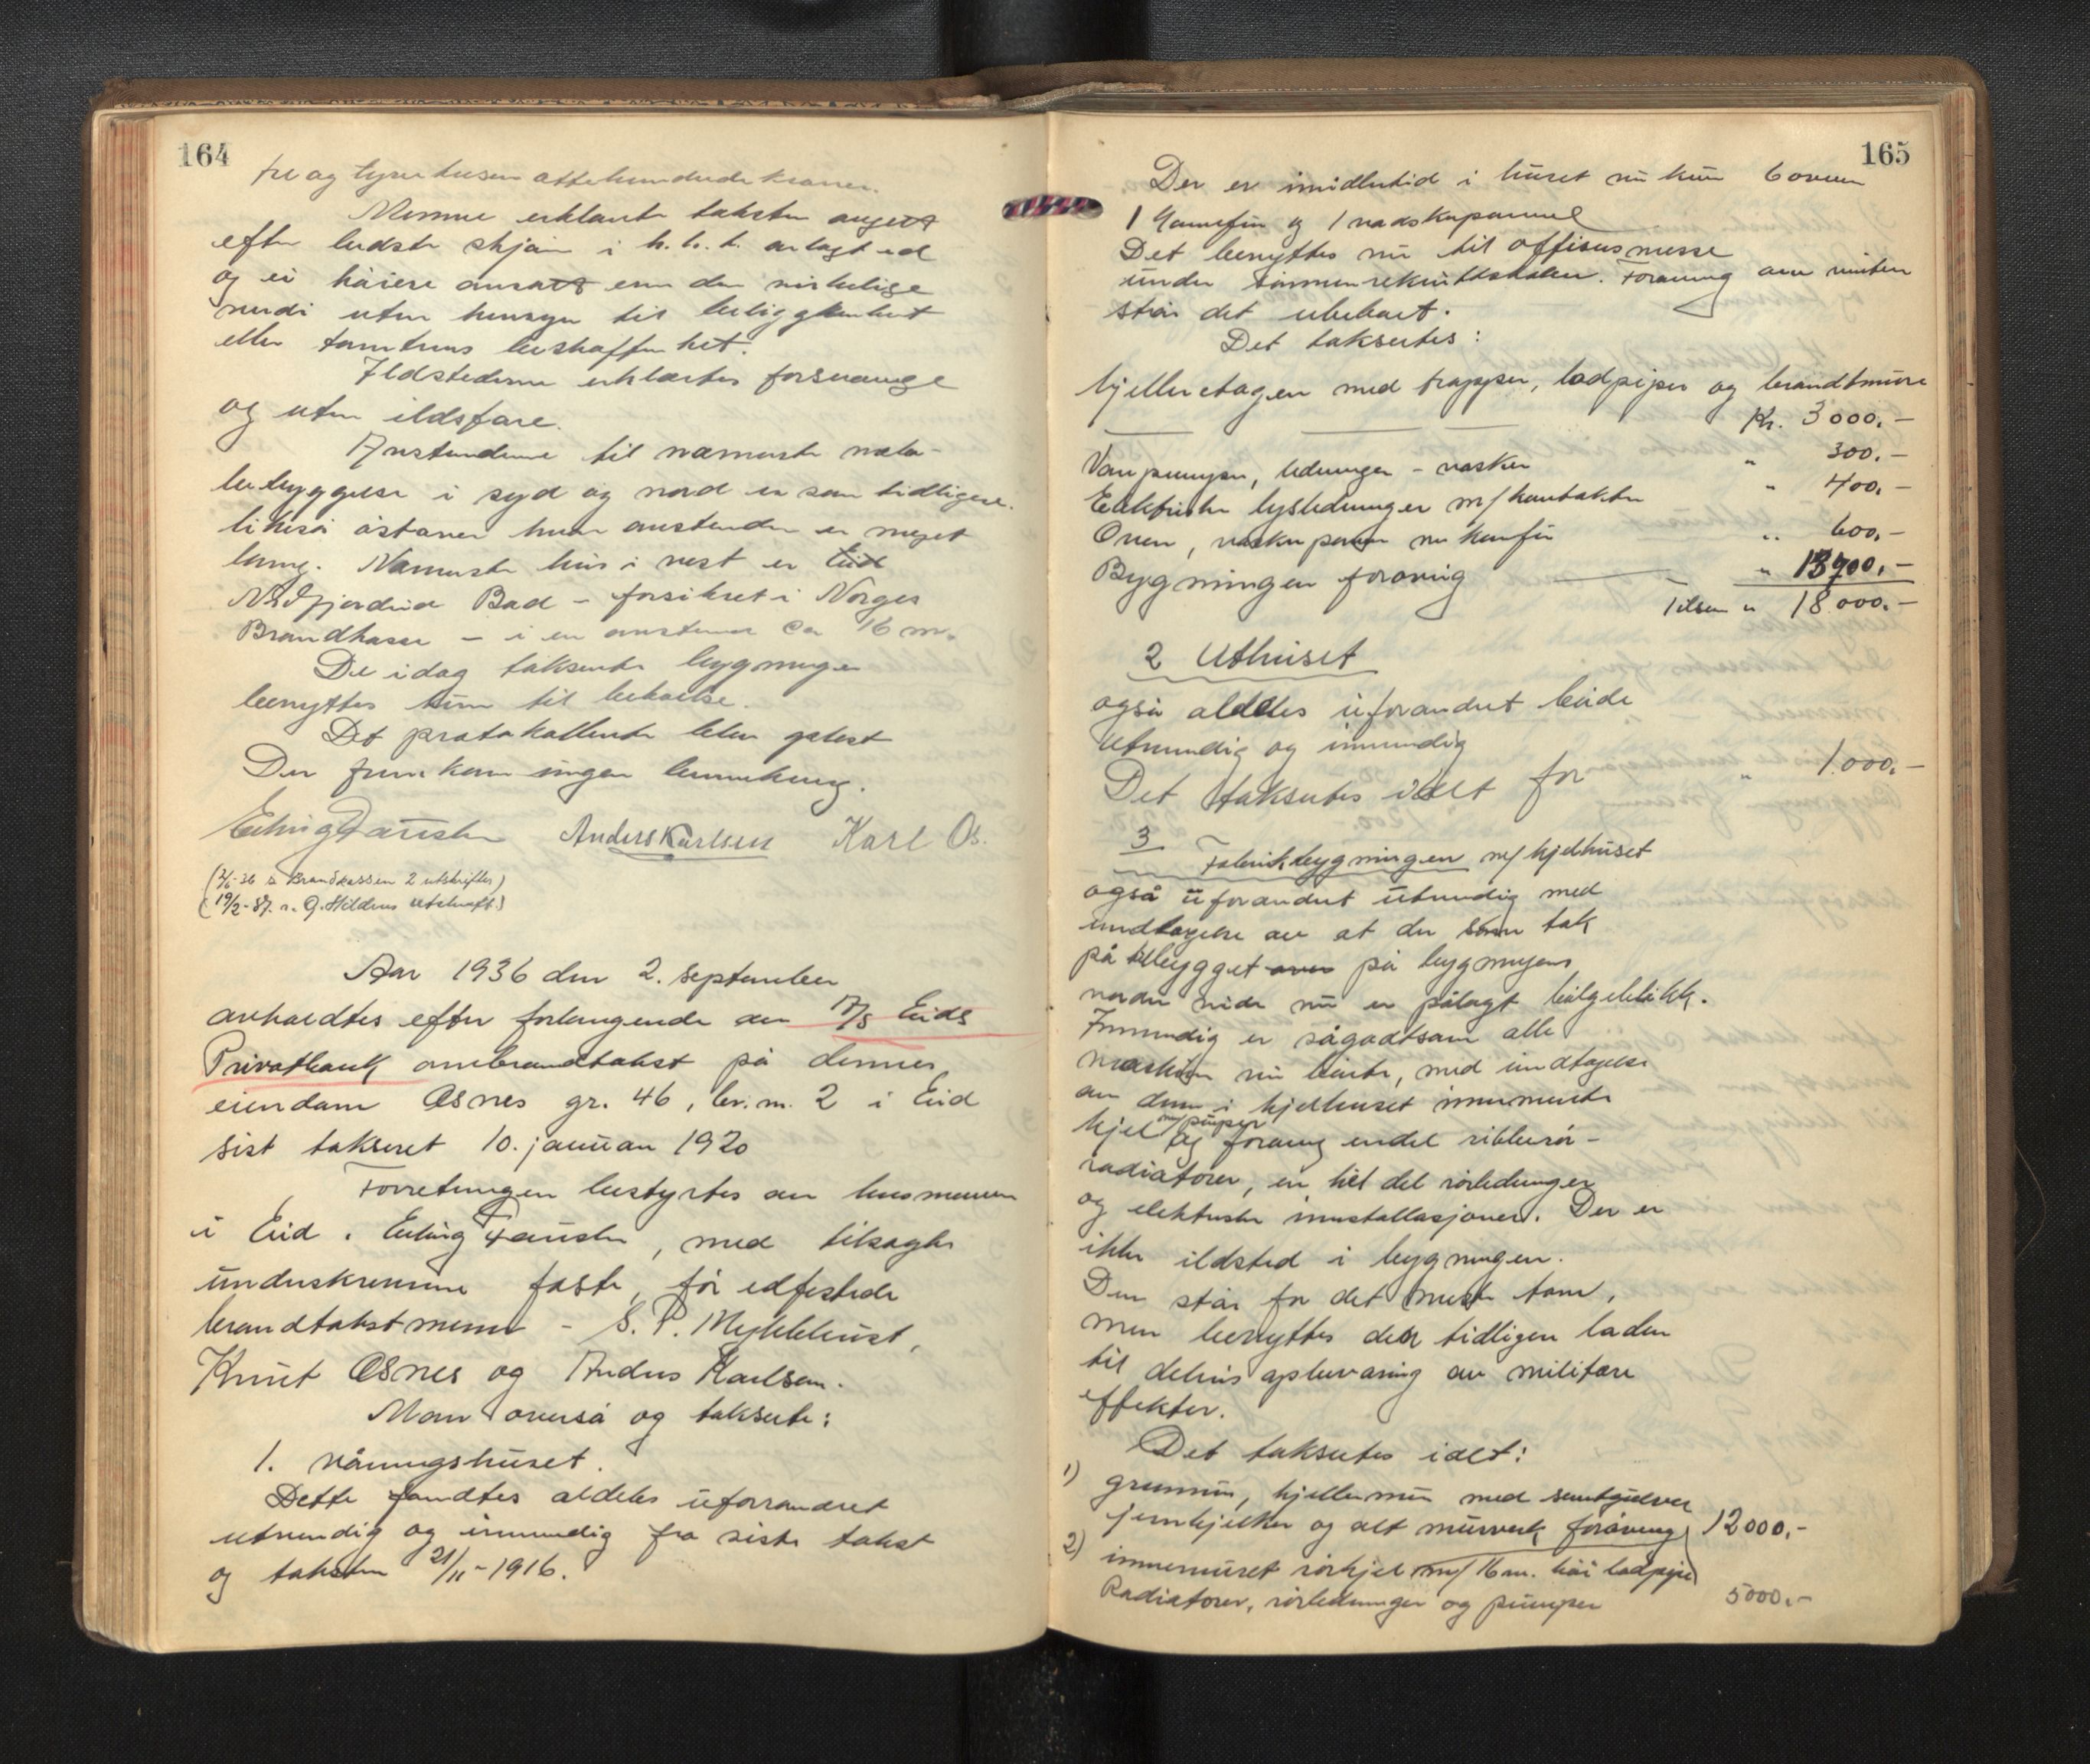 164
fir og tyve tusen ottehundrede kroner.
Mennene erklærte taksten angitt
efter bedste skjøn i h. t. avlagt ed
og ei høiere ansatt enn den virkelige
verdi uten hensyn til beliggenhet
eller tomtens beskaffenhet.
Ildstederne erklærtes forsvarlige
og uten ildsfare.
Avstanderne til nærmeste nabo-
bebyggelse i syd og nord er som tidligere.
likeså østover hvor avstanden er meget
lang. Nærmeste hus i vest er Eid
Nordfjordeid Bad – forsikret i Norges
Brandkasse – i en avstand ca 16 m.
De idag takserte bygninger
benyttes kun til beboelse.
Det protokollerte blev oplest
Der fremkom ingen bemerkning.
Erling Faustin Anders Karlsen Karl Os.
(2/6-36 s Brandkassen 2 utskrifter)
(19/2-37. s. G. Hildens utskrift)
Aar 1936 den 2. september
avholdtes efter forlangende av A/S Eids
Privatbank ombrandtakst på dennes
eiendom Osnes gr. 46, br. nr. 2 i Eid
sist taksert 10. januar 1920
Forretningen bestyrtes av lensmannen
i Eid, Erling Faustin, med tilsagte
underskrevne faste, før edfestede
brandtakstmenn – S. P. Myklebust,
Knut Osnes og Anders Karlsen.
Man overså og takserte:
1. våningshuset.
Dette fandtes aldeles uforandret
utvendig og innvendig fra siste takst
og taksten 21/11-1916.
165
Der er imidlertid i huset nu kun 6 ovner
1 komfyr og 1 vaskepanne
Det benyttes nu til offisersmesse
under sommerrekruttskolen. Forøvrig om vinteren
står det ubebodt.
Det taksertes:
Kjelleretagen med trapper, lodpiper og brandtmure
Kr. 3000.-
Vannpumpen, ledninger – vasker " 300.-
Elektriske lysledninger m/ kontakter " 400.-
Ovner, vaskepanne m komfyr " 600,-
Bygningen forøvrig " 13700,-
Tilsam " 18.000.-
2 Uthuset
også aldeles uforandret både
utvendig og innvendig
Det taksertes ialt for " 1.000,-
3
Fabrikbygningen m/ kjelhuset
også uforandret utvendig med
undtagelse av at der som tak
på tilbygget på bygningens
nordre side nu er pålagt bølgeblikk.
Innvendig er sågodtsom alle
maskiner nu borte, med undtagelse
av den i kjelhuset innmurte
kjel m/ piper og forøvrig endel ribberør-
radiatorer, en hel del rørledninger
og elektriske innstallasjoner. Der er
ikke ildsted i bygningen.
Den står for det meste tom,
men benyttes den tidligere laden
til delvis opbevaring av militære
effekter.
Det taksertes ialt:
1) grunnmur, kjellermur med
jernbjelker og alt murverk forøvrig 12000,-
2) innemuret rørkjel m/ 16 m. høi lodpipe
Radiatorer, rørledninger og pumper 5000.-